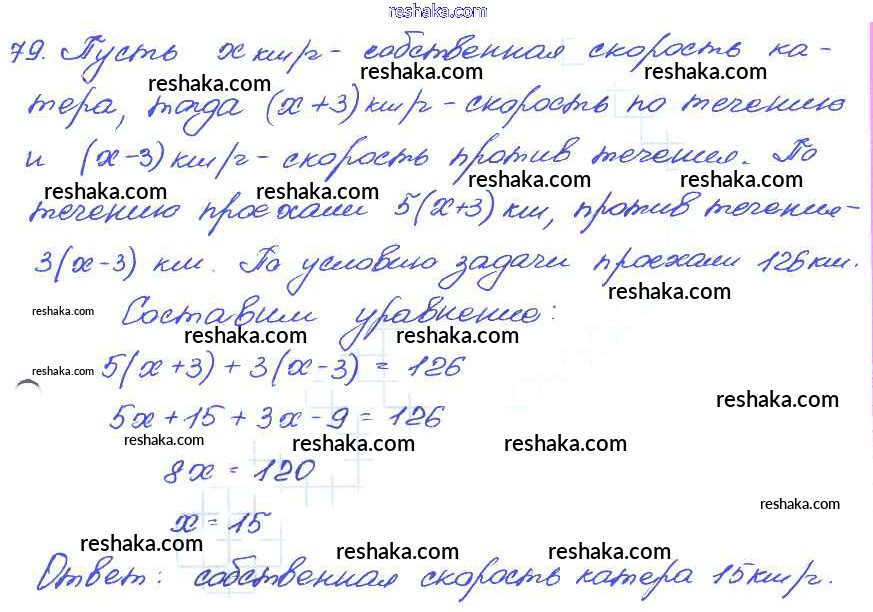 reshaka.com
79. Пусть x км/ч - собственная скорость ка-
reshaka.com reshaka.com reshaka.com
тера, тогда (x+3) км/ч - скорость по течению
reshaka.com reshaka.com
и (x-3) км/ч - скорость против течения. По
reshaka.com reshaka.com reshaka.com reshaka.com
течению проехали 5(x+3) км, против течения-
3(x-3) км. По условию задачи проехали 126 км.
reshaka.com
reshaka.com Составим уравнение:
reshaka.com reshaka.com
reshaka.com 5(x+3) + 3(x-3) = 126
reshaka.com
5x+15 + 3x-9 = 126
reshaka.com reshaka.com reshaka.com
8x = 120
reshaka.com
x = 15
reshaka.com reshaka.com reshaka.com
Ответ: собственная скорость катера 15 км/ч.